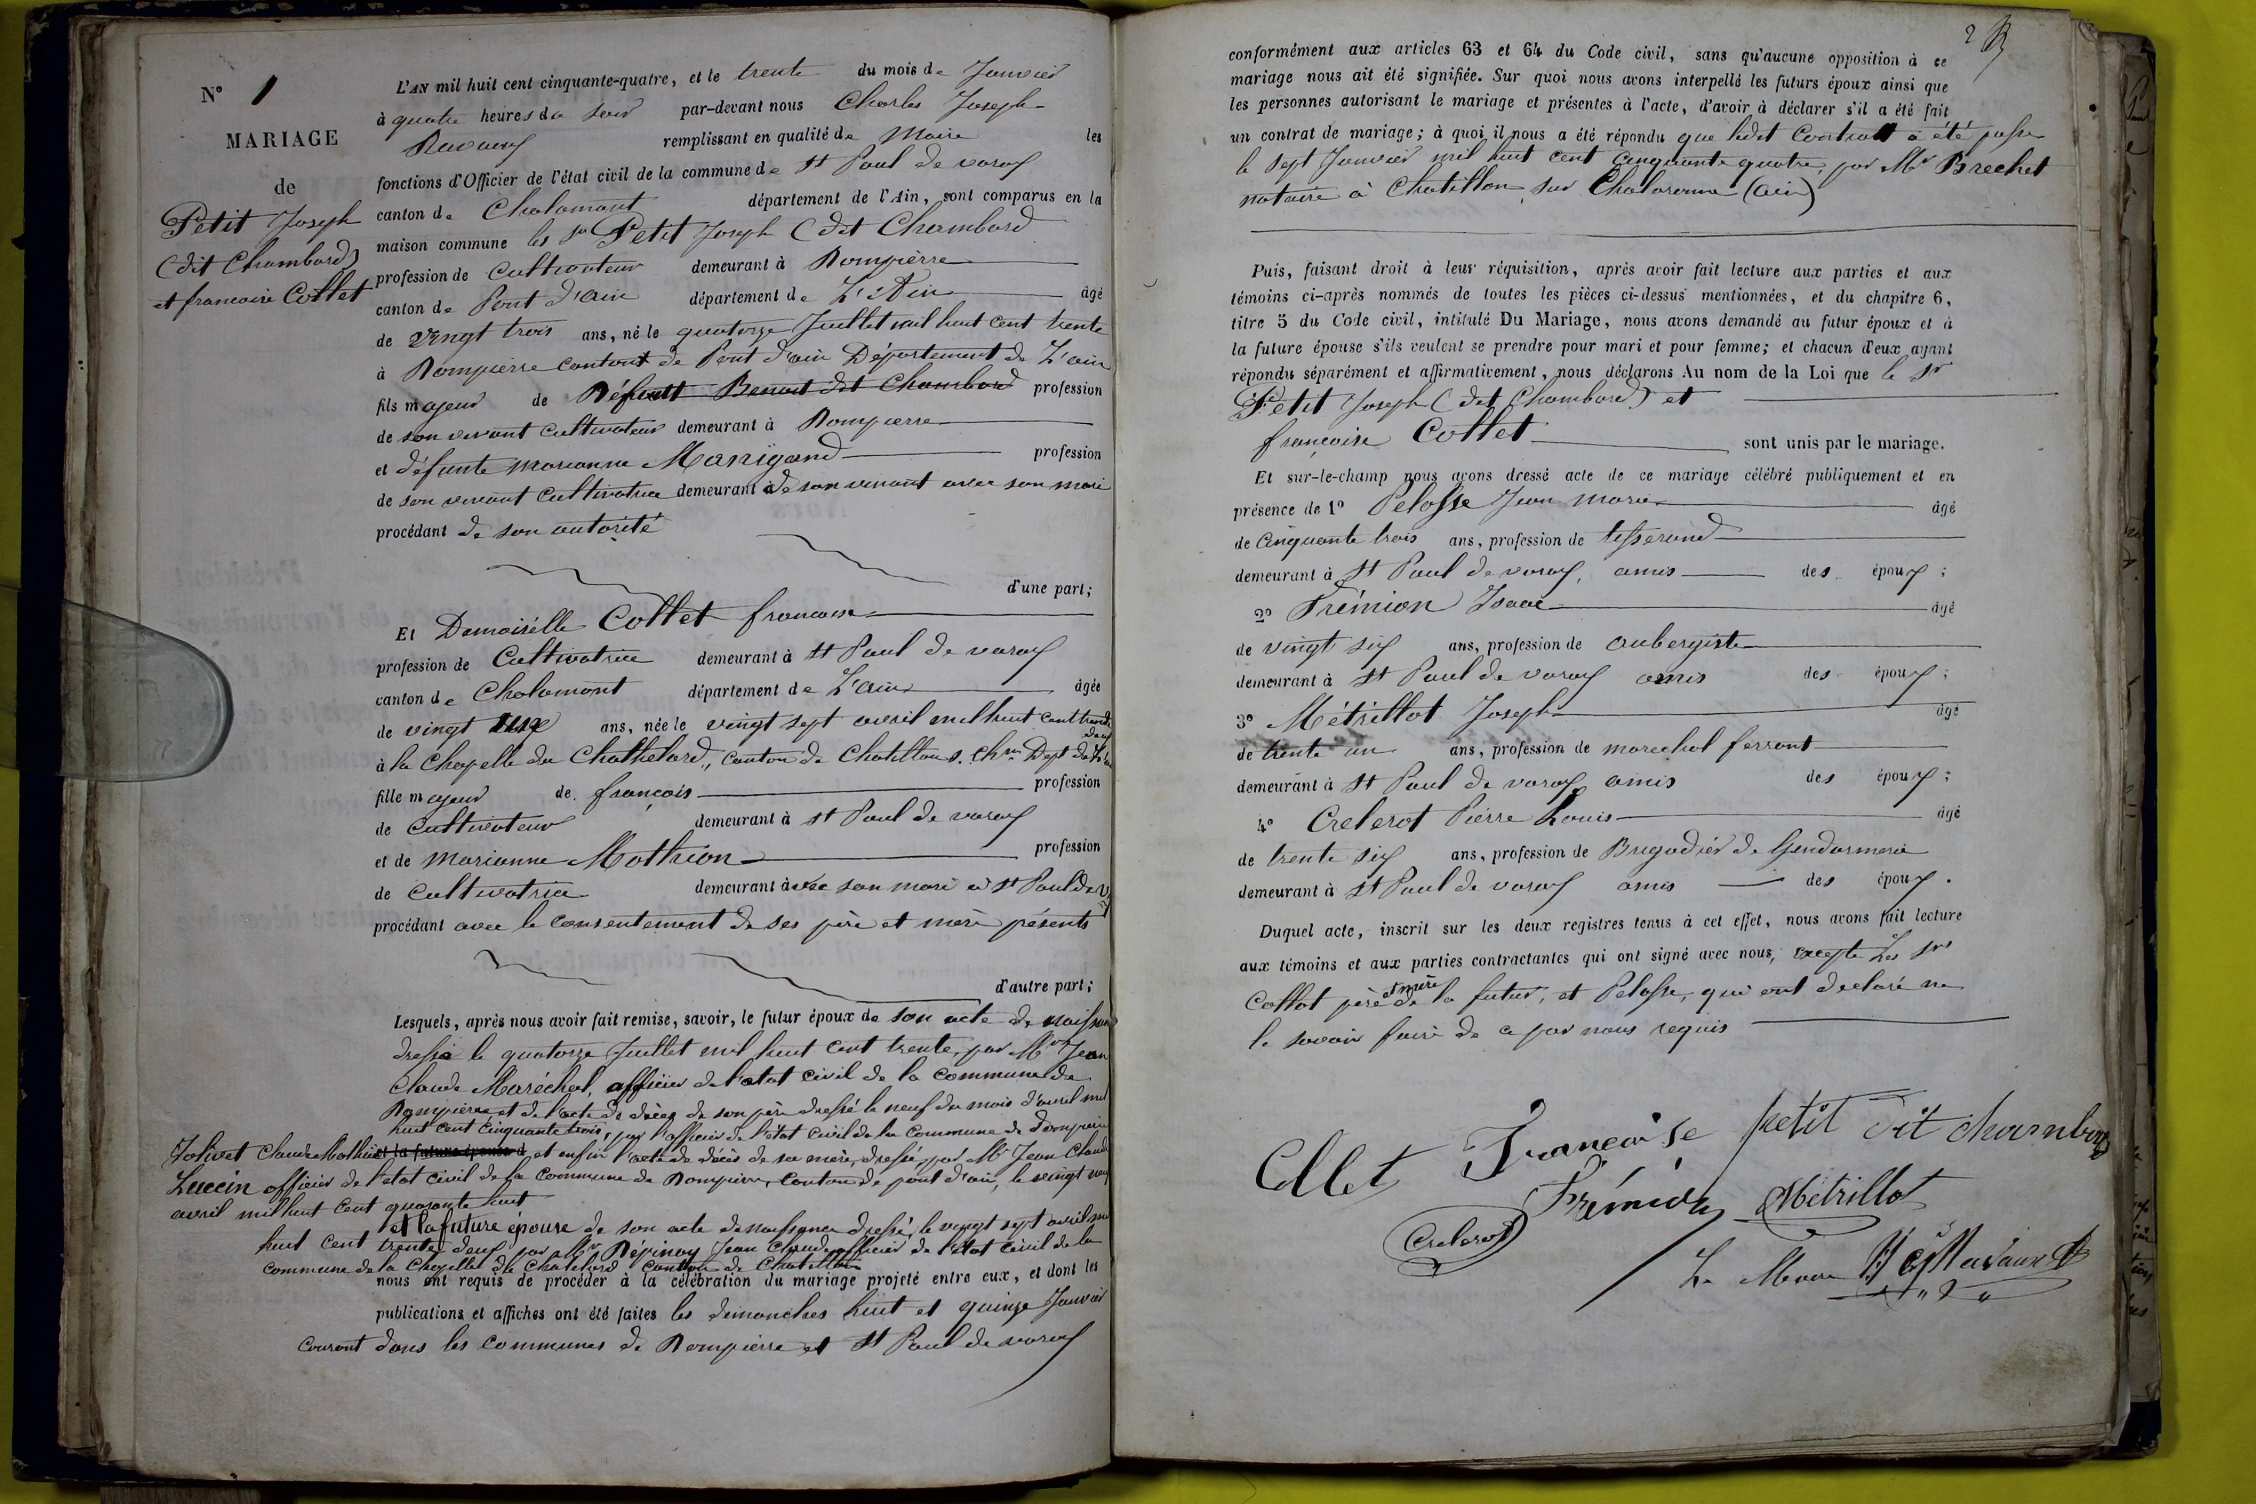 N° 1
MARIAGE
de
Petit Joseph
(dit Chambard)
et francoise Collet
L'AN mil huit cent cinquante-quatre, et le trente du mois de Janvier
à quatre heures du soir par-devant nous Charles Joseph
Ravaux remplissant en qualité de Maire les
fonctions d'Officier de l'état civil de la commune de St Paul de varax
canton de Chalamont département de l'Ain, sont comparus en la
maison commune les sr Petit Joseph (dit Chambard
profession de Cultivateur demeurant à Dompierre
canton de Pont d'ain département de L'Ain âgé
de Vingt trois ans, né le quatorze Juillet mil huit cent trente
à Dompierre canton de Pont d'ain Département de L'ain
fils majeur de Défunt Benoit dit Chambard profession
de son vivant cultivateur demeurant à Dompierre
et défunte marianne Manigand profession
de son vivant cultivatrice demeurant de son vivant avec son mari
procédant de son autorité
d'une part;
Et Demoiselle Collet francoise
profession de Cultivatrice demeurant à St Paul de varax
canton de Chalamont département de L'ain âgée
de vingt ans, née le vingt sept avril mil huit cent trente
deux
à la Chapelle du Chathelard, canton de Chatillon s. Chne Dept de L'ain
fille majeur de françois profession
de cultivateur demeurant à St Paul de varax
et de marianne Mothion profession
de cultivatrice demeurant avec son mari à St Paul de v
procédant avec le consentement de ses père et mère présents
d'autre part;
Lesquels, après nous avoir fait remise, savoir, le futur époux de son acte de naissance
dressé le quatorze Juillet mil huit cent trente, par Mr Jean
Claude Maréchal, officier de l'etat civil de la commune de
Dompierre et de l'acte de décès de son père dressé le neuf du mois d'avril mil
huit cent cinquante trois, par l'officier de l'état civil de la commune de dompierre
Jolivet Claude Mathieu et la future épouse et enfin l'acte de décès de sa mère, dressé par Mr Jean Claude
Luccin officier de l'état civil de la commune de Dompierre, canton de pont d'ain, le vingt neuf
avril mil huit cent quarante huit
et la future épouse de son acte de naissance dressé, le vingt sept avril mil
huit cent trente deux par Mr Dépinay Jean Claude officier de l'état civil de la
commune de la Chapelle du Chatelard canton de Chatillon
nous ont requis de procéder à la célébration du mariage projeté entre eux, et dont les
publications et affiches ont été faites les dimanches huit et quinze Janvier
courant dans les communes de Dompierre et St Paul de varax
2
conformément aux articles 63 et 64 du Code civil, sans qu'aucune opposition à ce
mariage nous ait été signifiée. Sur quoi nous avons interpellé les futurs époux ainsi que
les personnes autorisant le mariage et présentes à l'acte, d'avoir à déclarer s'il a été fait
un contrat de mariage; à quoi il nous a été répondu que ledit Contrat a été passé
le sept Janvier mil huit cent cinquante quatre, par Mr Brechet
notaire à Chatillon sur Chalaronne (ain)
Puis, faisant droit à leur réquisition, après avoir fait lecture aux parties et aux
témoins ci-après nommés de toutes les pièces ci-dessus mentionnées, et du chapitre 6,
titre 5 du Code civil, intitulé Du Mariage, nous avons demandé au futur époux et à
la future épouse s'ils veulent se prendre pour mari et pour femme; et chacun d'eux ayant
répondu séparément et affirmativement, nous déclarons Au nom de la Loi que le sr
Petit Joseph (dit Chambard) et
françoise Collet sont unis par le mariage.
Et sur-le-champ nous avons dressé acte de ce mariage célébré publiquement et en
présence de 1° Pelosse Jean marie âgé
de Cinquante trois ans, profession de tisserand
demeurant à St Paul de varax, amis des époux;
2° Frémion Isaac âgé
de vingt six ans, profession de aubergiste
demeurant à St Paul de varax amis des époux;
3° Métrillot Joseph âgé
de trente un ans, profession de marechal ferrant
demeurant à St Paul de varax amis des époux;
4° Crelerot Pierre Louis âgé
de trente six ans, profession de Brigadier de Gendarmerie
demeurant à St Paul de varax amis des époux.
Duquel acte, inscrit sur les deux registres tenus à cet effet, nous avons fait lecture
aux témoins et aux parties contractantes qui ont signé avec nous, excepté Les srs
Collot père et mère de la futur, et Pelosse, qui ont declaré ne
le savoir faire de ce par nous requis
Collet Francoise petit dit chambard
Crelerot Frémion Métrillot
Le Maire Ravaux